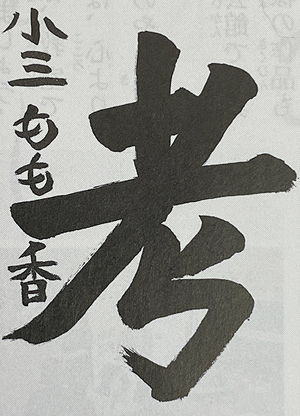 考
小三 もも香